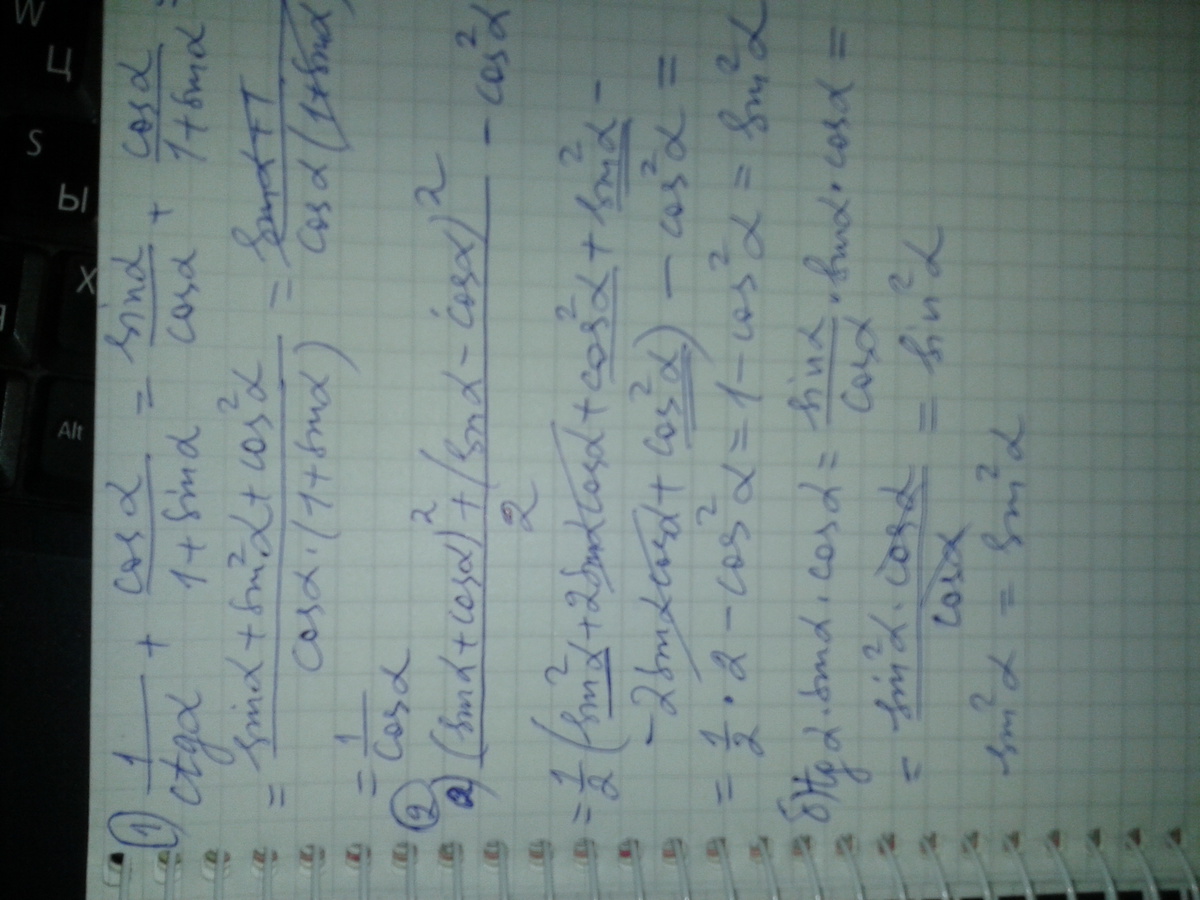 ① 1/ctgα + cosα/(1+sinα) = sinα/cosα + cosα/(1+sinα) =
= (sinα + sin²α + cos²α)/(cosα·(1+sinα)) = (sinα+1)/(cosα(1+sinα)) 
= 1/cosα
②
а) ((sinα+cosα)² + (sinα-cosα)²)/2 - cos²α
= 1/2 (sin²α + 2sinαcosα + cos²α + sin²α -
- 2sinαcosα + cos²α) - cos²α =
= 1/2 · 2 - cos²α = 1 - cos²α = sin²α
б) tgα·sinα·cosα = sinα/cosα · sinα·cosα =
= (sin²α·cosα)/cosα = sin²α
sin²α = sin²α
W
Ц
S
Ы
X
Alt